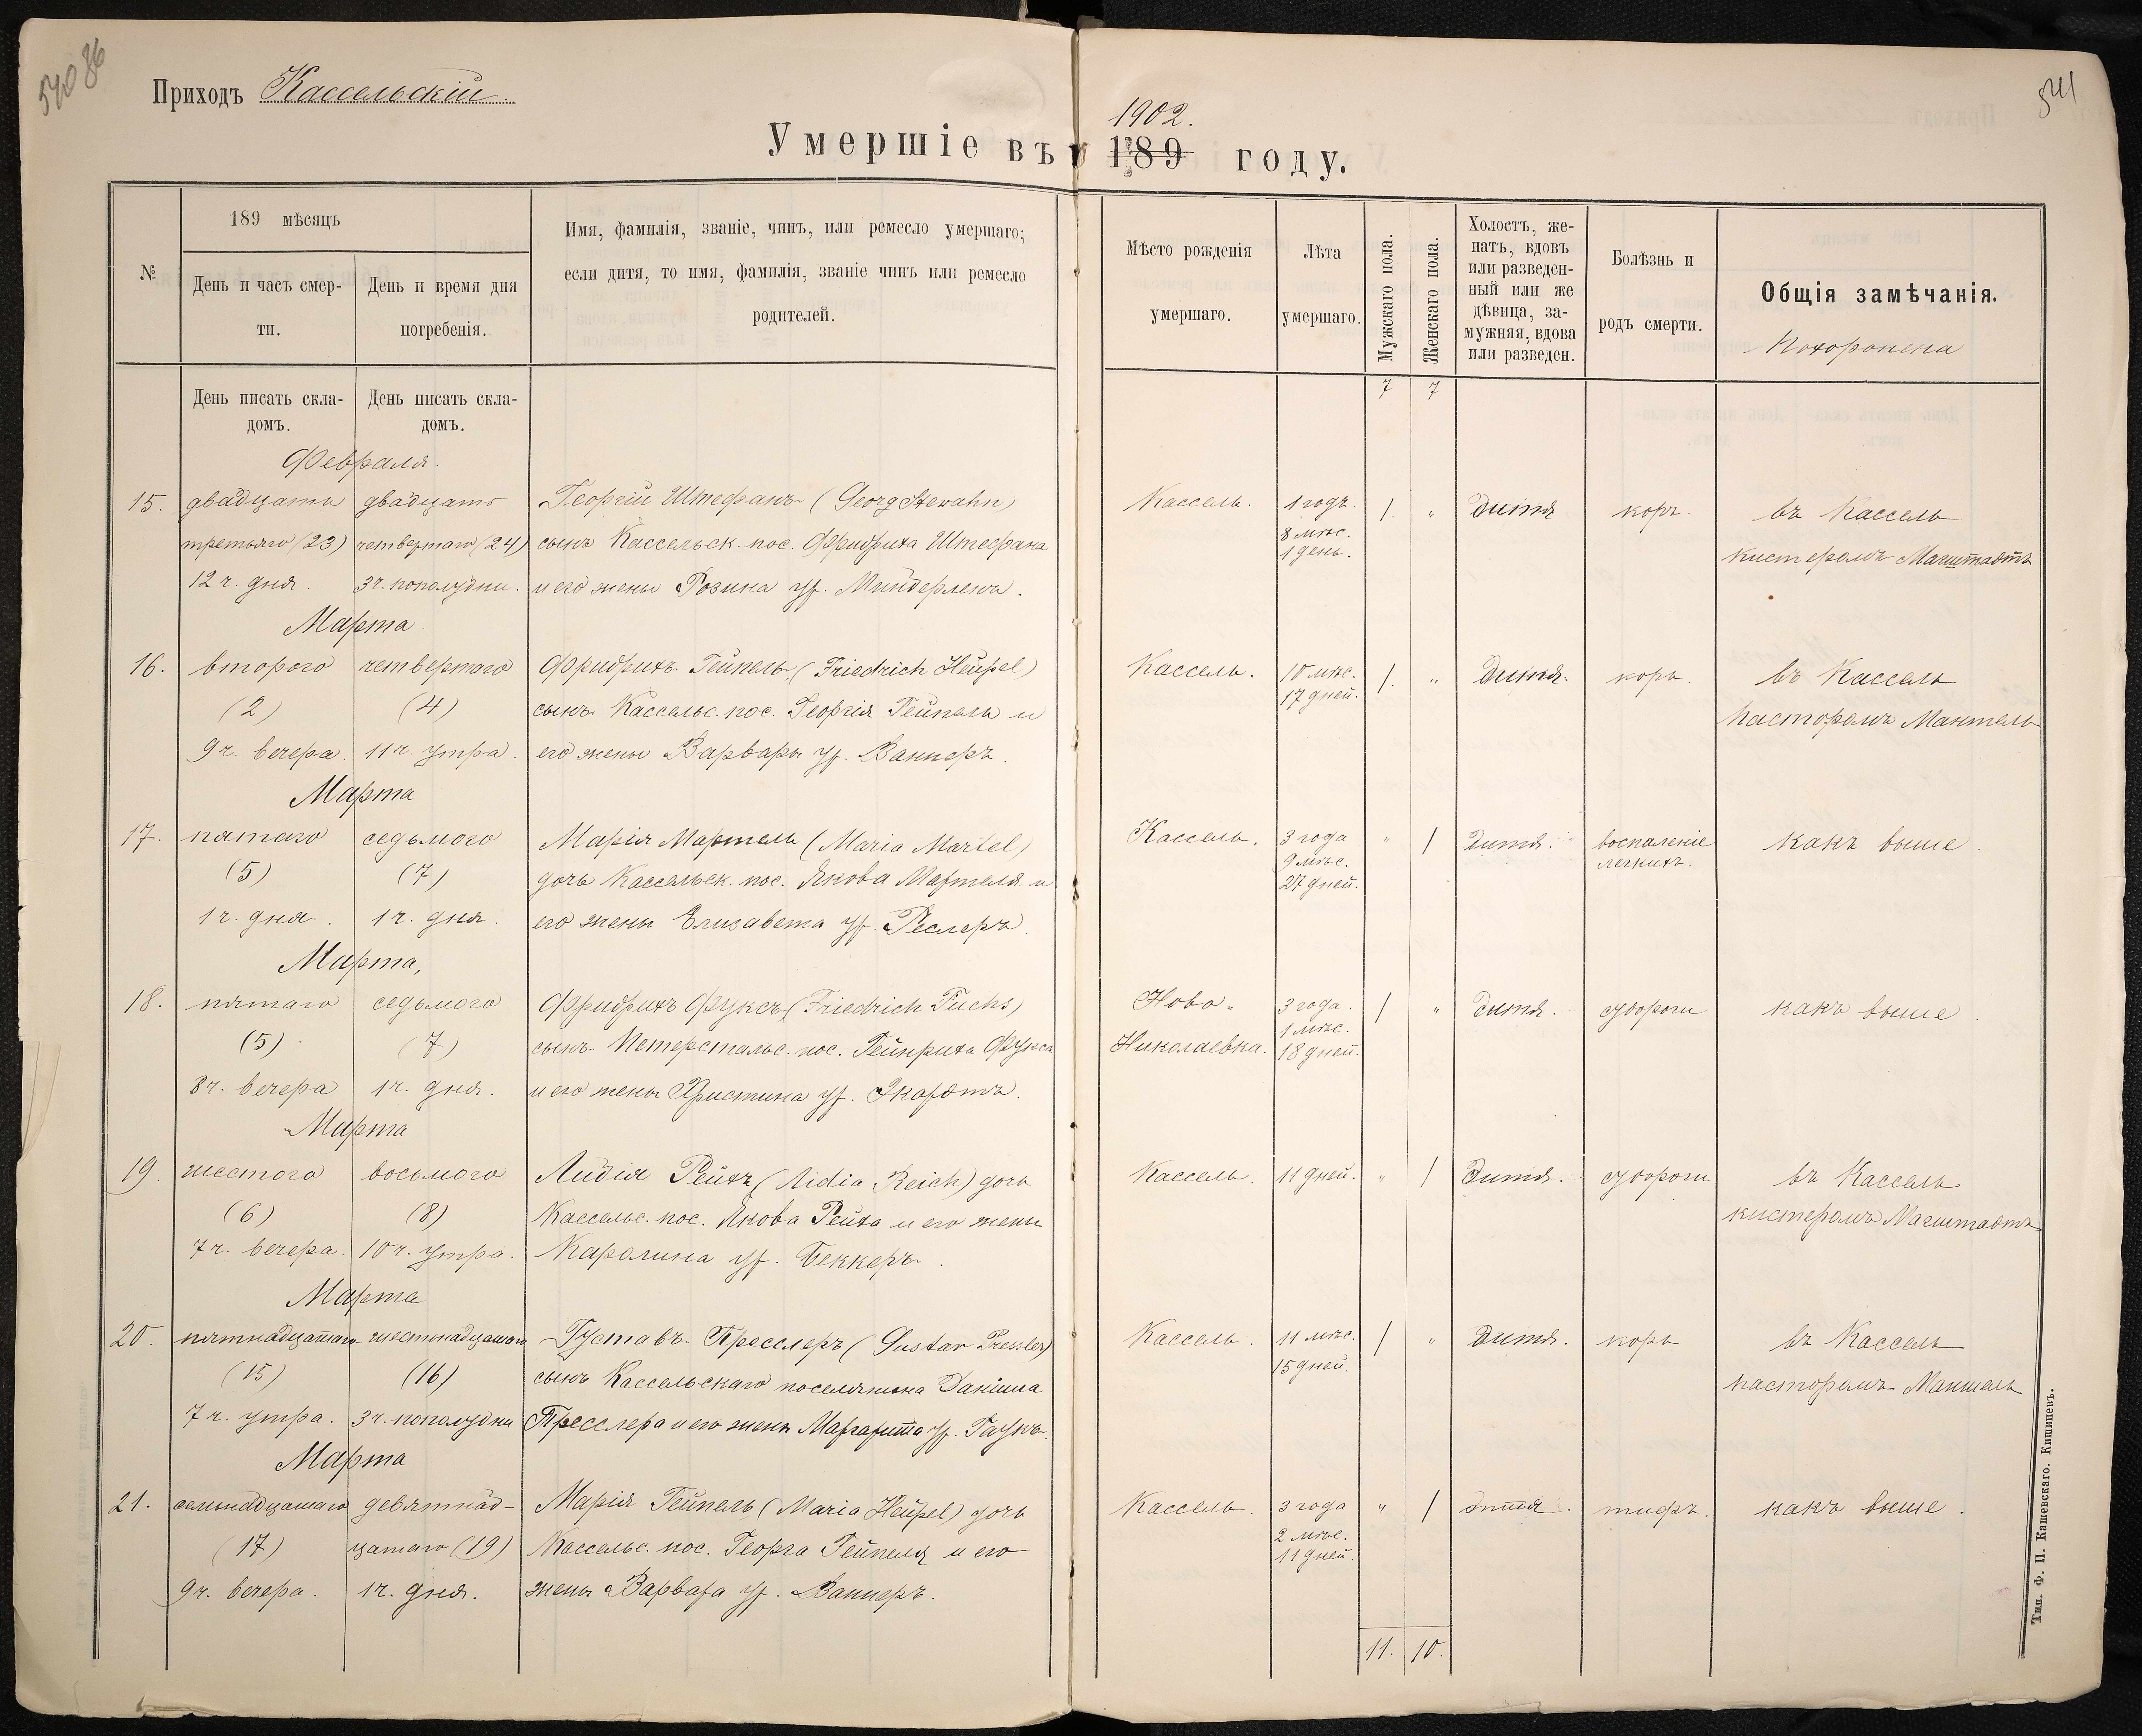 540 86
541
Приходъ Кассельскій.
1902.
Умершіе въ 189 году.
№
189 мѣсяцъ
День и часъ смер-
ти.
День и время дня
погребенія.
Имя, фамилія, званіе, чинъ, или ремесло умершаго;
если дитя, то имя, фамилія, званіе чинъ или ремесло
родителей.
Мѣсто рожденія
умершаго.
Лѣта
умершаго.
Мужскаго пола.
Женскаго пола.
Холостъ, же-
натъ, вдовъ
или разведен-
ный или же
дѣвица, за-
мужняя, вдова
или разведен.
Болѣзнь и
родъ смерти.
Общія замѣчанія.
Похоронена
День писать скла-
домъ.
День писать скла-
домъ.
7 7
Февраля.
15. двадцать двадцать Георгій Штефанъ (Georg Stewahn) Кассель. 1 годъ. 1. „ дитя корь. въ Кассель
третьяго (23) четвертаго (24) сынъ Кассельск. пос. Фридриха Штефана 8 мѣс. кистеромъ Магштадтъ
1 день.
12 ч. дня. 3 ч. пополудни. и его жены Розина ур. Миндерленъ.
Марта
16. второго четвертаго Фридрихъ Гейпель (Friedrich Heüpel) Кассель. 10 мѣс. 1. „ дитя. корь. въ Кассель
17 дней.
(2) (4) сынъ Кассельс. пос. Георгія Гейпель и пасторомъ Мантель
9 ч. вечера. 11 ч. утра. его жены Варвары ур. Ваннеръ.
Марта
17. пятаго седьмого Марія Мартель (Maria Martel) Кассель. 3 года „ 1 дитя. воспаленіе какъ выше.
9 мѣс. легкихъ.
(5) (7) дочь Кассельск. пос. Якова Мартеля и 27 дней.
1 ч. дня. 1 ч. дня. его жены Елизавета ур. Реслеръ.
Марта,
18. пятаго седьмого Фридрихъ Фуксъ (Friedrich Fuchs) Ново- 3 года. 1 „ дитя. судороги какъ выше.
1 мѣс.
(5) (7) сынъ Петерстальс. пос. Гейнриха Фукса Николаевка. 18 дней.
8 ч. вечера 1 ч. дня. и его жены Христина ур. Экардтъ.
Марта
19. шестого восьмого Лидія Рейхъ (Lidia Reich) дочь Кассель. 11 дней. „ 1 дитя. судороги въ Кассель
(6) (8) Кассельс. пос. Якова Рейха и его жены кистеромъ Магштадтъ
7 ч. вечера. 10 ч. утра. Каролина ур. Беккеръ.
Марта
20. пятнадцатаго шестнадцатаго Густавъ Пресслеръ (Gustav Pressler) Кассель. 11 мѣс. 1 „ дитя. корь въ Кассель
15 дней.
(15) (16) сынъ Кассельскаго поселянина Даніила пасторомъ Мантель
7 ч. утра. 3 ч. пополудни Пресслера и его жены Маргарита ур. Гаукъ.
Марта
21. семнадцатаго девятнад- Марія Гейпель (Maria Heüpel) дочь Кассель. 3 года „ 1 дитя. тифъ. какъ выше.
2 мѣс.
(17) цатаго (19) Кассельс. пос. Георга Гейпеля и его 11 дней.
9 ч. вечера. 1 ч. дня. жены Варвара ур. Ваннеръ.
11. 10.
Тип. Ф. П. Кашевскаго. Кишиневъ.